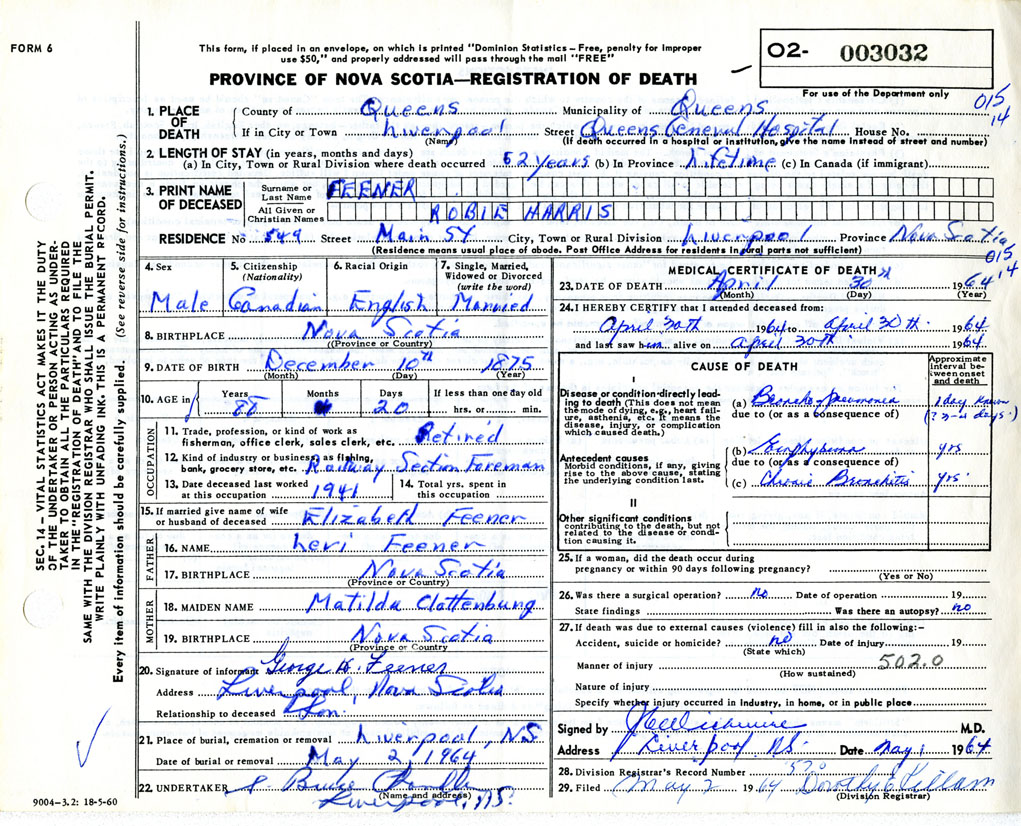 FORM 6
This form, if placed in an envelope, on which is printed "Dominion Statistics – Free, penalty for improper
use $50," and properly addressed will pass through the mail "FREE"
PROVINCE OF NOVA SCOTIA—REGISTRATION OF DEATH
O2- 003032
For use of the Department only
015
14
1. PLACE OF DEATH
County of Queens Municipality of Queens
If in City or Town Liverpool Street Queens General Hospital House No.
(Name) (If death occurred in a hospital or institution, give the name instead of street and number)
2. LENGTH OF STAY (in years, months and days)
(a) In City, Town or Rural Division where death occurred 52 years (b) In Province Lifetime (c) In Canada (if immigrant)
3. PRINT NAME OF DECEASED
Surname or Last Name FEENER
All Given or Christian Names ROBIE HARRIS
RESIDENCE No 549 Street Main St City, Town or Rural Division Liverpool Province Nova Scotia
(Residence means usual place of abode. Post Office Address for residents in rural parts not sufficient)
015
14
4. Sex
Male
5. Citizenship
(Nationality)
Canadian
6. Racial Origin
English
7. Single, Married,
Widowed or Divorced
(write the word)
Married
8. BIRTHPLACE Nova Scotia
(Province or Country)
9. DATE OF BIRTH December 10th 1875
(Month) (Day) (Year)
10. AGE in Years Months Days If less than one day old
88 20 hrs. or min.
OCCUPATION
11. Trade, profession, or kind of work as
fisherman, office clerk, sales clerk, etc. Retired
12. Kind of industry or business as fishing,
bank, grocery store, etc. Railway Section Foreman
13. Date deceased last worked
at this occupation 1941
14. Total yrs. spent in
this occupation
15. If married give name of wife
or husband of deceased Elizabeth Feener
FATHER
16. NAME Levi Feener
17. BIRTHPLACE Nova Scotia
(Province or Country)
MOTHER
18. MAIDEN NAME Matilda Clattenburg
19. BIRTHPLACE Nova Scotia
(Province or Country
20. Signature of informant George H. Feener
Address Liverpool, Nova Scotia
Relationship to deceased Son.
21. Place of burial, cremation or removal Liverpool, N.S
Date of burial or removal May 2, 1964
22. UNDERTAKER
(Name and address)
Liverpool, N.S.
9004-3.2: 18-5-60
MEDICAL CERTIFICATE OF DEATH
23. DATE OF DEATH April 30th 1964
(Month) (Day) (Year)
24. I HEREBY CERTIFY that I attended deceased from:
April 30th 1964 to April 30th. 1964
and last saw him alive on April 30th. 1964
CAUSE OF DEATH
Approximate
interval be-
tween onset
and death
I
Disease or condition directly lead-
ing to death (This does not mean
the mode of dying, e.g., heart fail-
ure, asthenia, etc. It means the
disease, injury, or complication
which caused death.)
(a) Broncho-pneumonia 1 day known
due to (or as a consequence of) (? 3-4 days.)
Antecedent causes
Morbid conditions, if any, giving
rise to the above cause, stating
the underlying condition last.
(b) Emphysema yrs
due to (or as a consequence of)
(c) Chronic Bronchitis yrs.
II
Other significant conditions
contributing to the death, but not
related to the disease or condi-
tion causing it.
25. If a woman, did the death occur during
pregnancy or within 90 days following pregnancy?
(Yes or No)
26. Was there a surgical operation? No Date of operation 19
State findings Was there an autopsy? no
27. If death was due to external causes (violence) fill in also the following:–
Accident, suicide or homicide? no Date of injury 19
(State which)
Manner of injury 502.0
(How sustained)
Nature of injury
Specify whether injury occurred in industry, in home, or in public place
Signed by M.D.
Address Liverpool N.S. Date May 1 1964
28. Division Registrar's Record Number
29. Filed May 2 1964 Dorothy E Killam
(Division Registrar)
SEC. 14 – VITAL STATISTICS ACT MAKES IT THE DUTY
OF THE UNDERTAKER OR PERSON ACTING AS UNDER-
TAKER TO OBTAIN ALL THE PARTICULARS REQUIRED
IN THE "REGISTRATION OF DEATH" AND TO FILE THE
SAME WITH THE DIVISION REGISTRAR WHO SHALL ISSUE THE BURIAL PERMIT.
WRITE PLAINLY WITH UNFADING INK. THIS IS A PERMANENT RECORD.
Every item of information should be carefully supplied. (See reverse side for instructions.)